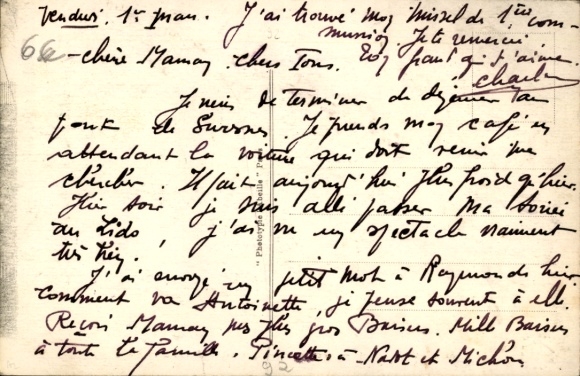 Vendredi 1er mars. J'ai trouvé mon missel de 1ère com-
munion. Je te remercie
Ton grand qui t'aime.
Charles
66
- chère Maman, chers Tous.
Je viens de terminer de déjeuner au
pont de Suresnes. Je prends mon café en
attendant la voiture qui doit venir me
chercher. Il fait aujourd'hui plus froid qu'hier.
Hier soir je suis allé passer ma soirée
au Lido, j'ai vu un spectacle vraiment
très bien.
J'ai envoyé un petit mot à Raymonde hier.
comment va Antoinette, je pense souvent à elle.
Reçois Maman mes plus gros Baisers. Mille Baisers
à toute la famille. à et Michou
92
" Phototypie Abeille " Paris